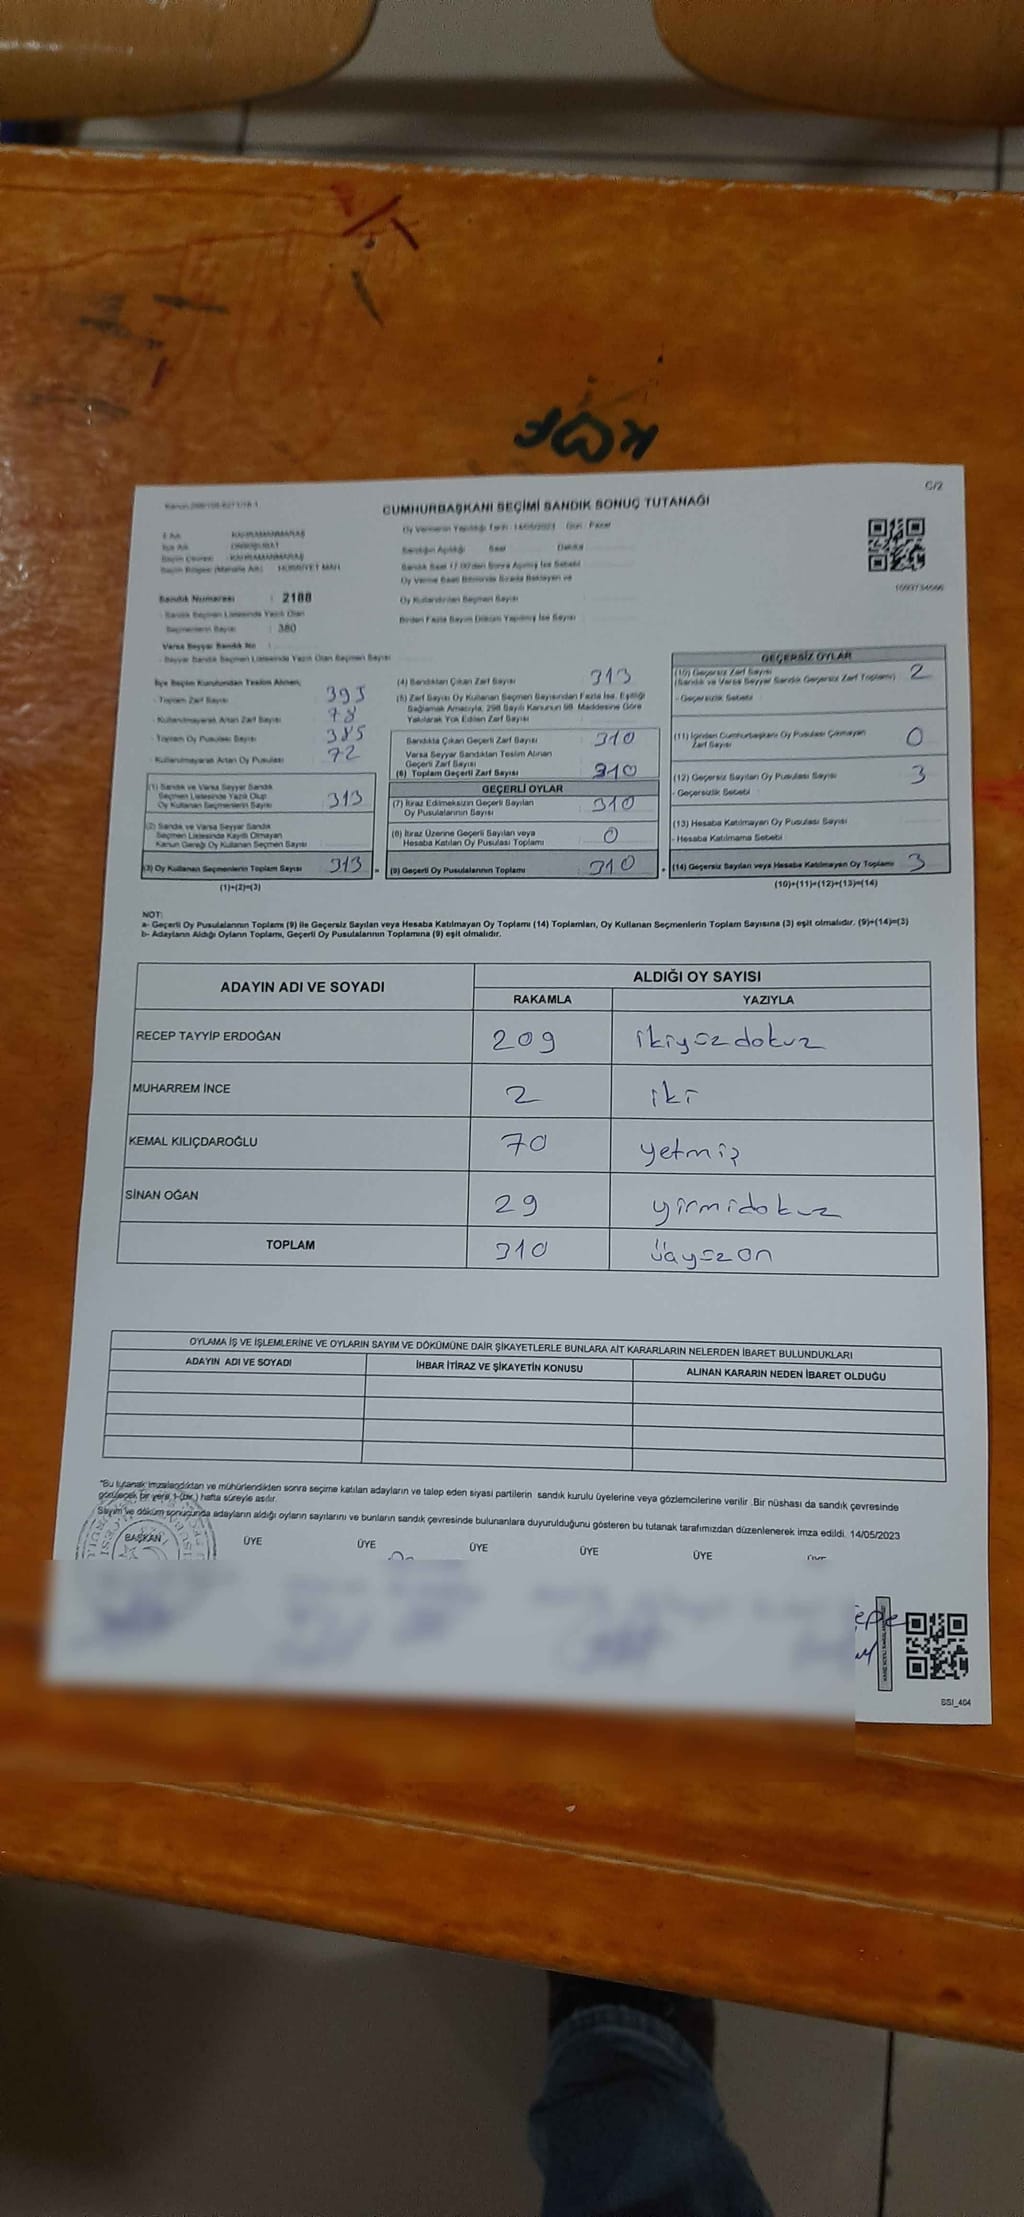 C/2
CUMHURBAŞKANI SEÇİMİ SANDIK SONUÇ TUTANAĞI
İl Adı : KAHRAMANMARAŞ
İlçe Adı : ONİKİŞUBAT
Seçim Çevresi : KAHRAMANMARAŞ
Seçim Bölgesi (Mahalle Adı) : HÜRRİYET MAH
Sandık Numarası : 2188
Sandık Seçmen Listesinde Yazılı Olan
Seçmenlerin Sayısı : 380
Varsa Seyyar Sandık No :
- Seyyar Sandık Seçmen Listesinde Yazılı Olan Seçmen Sayısı
Oy Vermenin Yapıldığı Tarih : 14/05/2023 Gün : Pazar
Sandığın Açıldığı Saat Dakika
Sandık Saat 17.00'den Sonra Açılmış İse Sebebi
Oy Verme Saati Bitiminde Sırada Bekleyen ve
Oy Kullandırılan Seçmen Sayısı
Birden Fazla Sayım Döküm Yapılmış İse Sayısı
İlçe Seçim Kurulundan Teslim Alınan;
- Toplam Zarf Sayısı 393
- Kullanılmayarak Artan Zarf Sayısı 78
- Toplam Oy Pusulası Sayısı 385
- Kullanılmayarak Artan Oy Pusulası 72
(1) Sandık ve Varsa Seyyar Sandık
Seçmen Listesinde Yazılı Olup
Oy Kullanan Seçmenlerin Sayısı 313
(2) Sandık ve Varsa Seyyar Sandık
Seçmen Listesinde Kayıtlı Olmayan
Kanun Gereği Oy Kullanan Seçmen Sayısı
(3) Oy Kullanan Seçmenlerin Toplam Sayısı 313 =
(1)+(2)=(3)
(4) Sandıktan Çıkan Zarf Sayısı 313
(5) Zarf Sayısı Oy Kullanan Seçmen Sayısından Fazla İse, Eşitliği
Sağlamak Amacıyla, 298 Sayılı Kanunun 98. Maddesine Göre
Yakılarak Yok Edilen Zarf Sayısı
Sandıkta Çıkan Geçerli Zarf Sayısı 310
Varsa Seyyar Sandıktan Teslim Alınan
Geçerli Zarf Sayısı
(6) Toplam Geçerli Zarf Sayısı 310
GEÇERLİ OYLAR
(7) İtiraz Edilmeksizin Geçerli Sayılan
Oy Pusulalarının Sayısı 310
(8) İtiraz Üzerine Geçerli Sayılan veya
Hesaba Katılan Oy Pusulası Toplamı 0
(9) Geçerli Oy Pusulalarının Toplamı 310 +
GEÇERSİZ OYLAR
(10) Geçersiz Zarf Sayısı
(Sandık ve Varsa Seyyar Sandık Geçersiz Zarf Toplamı) 2
- Geçersizlik Sebebi
(11) İçinden Cumhurbaşkanı Oy Pusulası Çıkmayan
Zarf Sayısı 0
(12) Geçersiz Sayılan Oy Pusulası Sayısı 3
- Geçersizlik Sebebi
(13) Hesaba Katılmayan Oy Pusulası Sayısı
- Hesaba Katılmama Sebebi
(14) Geçersiz Sayılan veya Hesaba Katılmayan Oy Toplamı 3
(10)+(11)+(12)+(13)=(14)
NOT:
a- Geçerli Oy Pusulalarının Toplamı (9) ile Geçersiz Sayılan veya Hesaba Katılmayan Oy Toplamı (14) Toplamları, Oy Kullanan Seçmenlerin Toplam Sayısına (3) eşit olmalıdır. (9)+(14)=(3)
b- Adayların Aldığı Oyların Toplamı, Geçerli Oy Pusulalarının Toplamına (9) eşit olmalıdır.
ADAYIN ADI VE SOYADI ALDIĞI OY SAYISI
RAKAMLA YAZIYLA
RECEP TAYYİP ERDOĞAN 209 ikiyüzdokuz
MUHARREM İNCE 2 iki
KEMAL KILIÇDAROĞLU 70 yetmiş
SİNAN OĞAN 29 yirmidokuz
TOPLAM 310 üçyüzon
OYLAMA İŞ VE İŞLEMLERİNE VE OYLARIN SAYIM VE DÖKÜMÜNE DAİR ŞİKAYETLERLE BUNLARA AİT KARARLARIN NELERDEN İBARET BULUNDUKLARI
ADAYIN ADI VE SOYADI İHBAR İTİRAZ VE ŞİKAYETİN KONUSU ALINAN KARARIN NEDEN İBARET OLDUĞU
"Bu tutanak imzalandıktan ve mühürlendikten sonra seçime katılan adayların ve talep eden siyasi partilerin sandık kurulu üyelerine veya gözlemcilerine verilir .Bir nüshası da sandık çevresinde
görülecek bir yere 1 (bir) hafta süreyle asılır.
Sayım ve döküm sonucunda adayların aldığı oyların sayılarını ve bunların sandık çevresinde bulunanlara duyurulduğunu gösteren bu tutanak tarafımızdan düzenlenerek imza edildi. 14/05/2023
BAŞKAN ÜYE ÜYE ÜYE ÜYE ÜYE
SSI_404